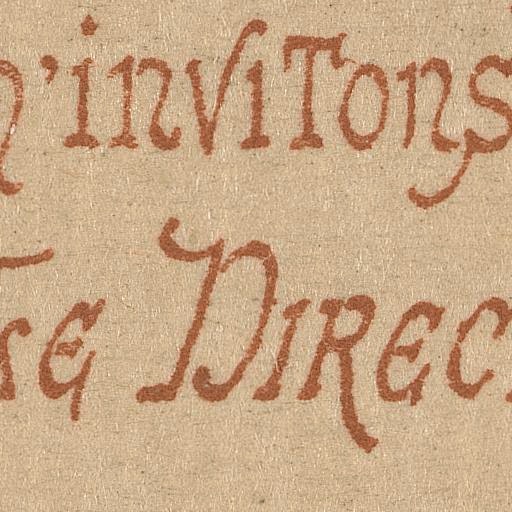 n'invitons
se Direc